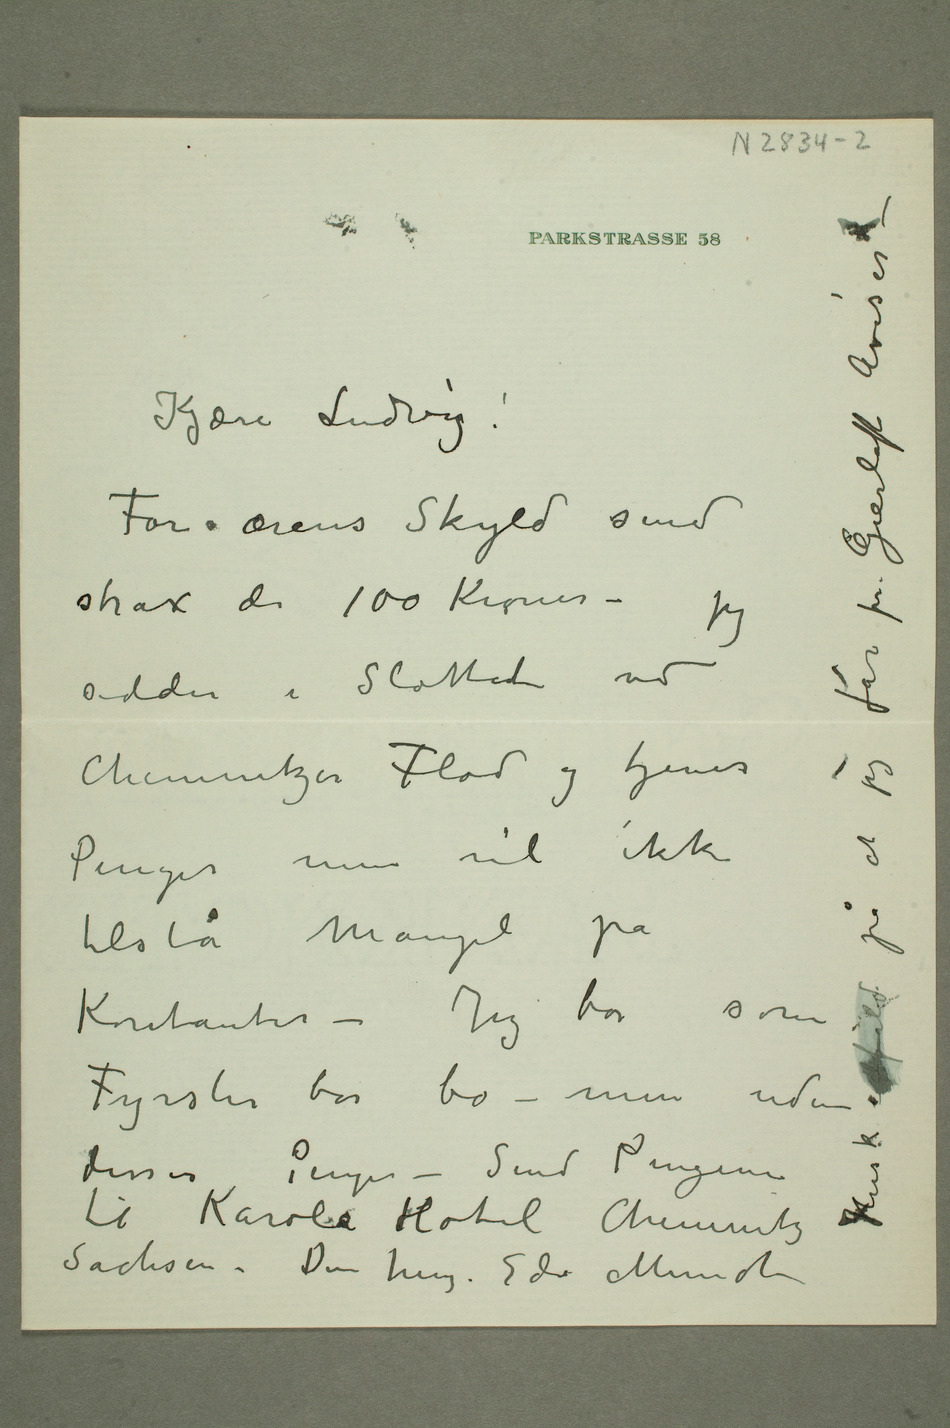 N 2834-2
PARKSTRASSE 58
Kjære Ludvig!
For ærens Skyld send
strax de 100 Kroner – jeg
sidder i Slottet ved
Chemnitzer Flod og tjener
Penger men vil ikke
tilstå Mangel på
Kontanter – Jeg bor som
Fyrster bør bo – men uden
disses Penger – Send Pengene
til Karola Hotel Chemnitz
Sachsen. Din heng. Edv Munch
Husk på at jeg får pr. Gjerløff Aviser –